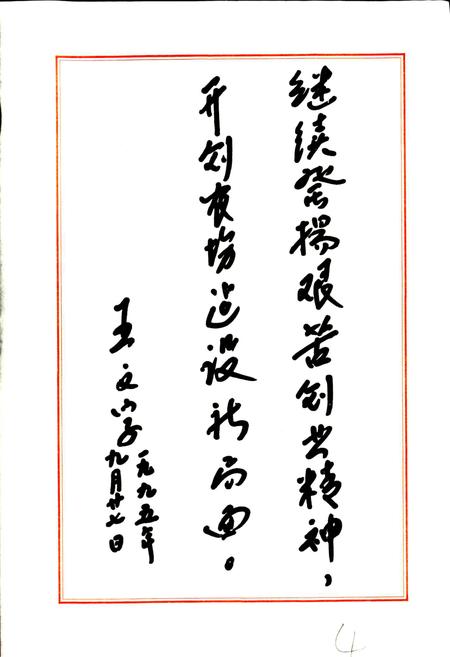 继续发扬艰苦创业精神，
开创农场建设新局面。
王文学
一九九五年
九月廿七日
4